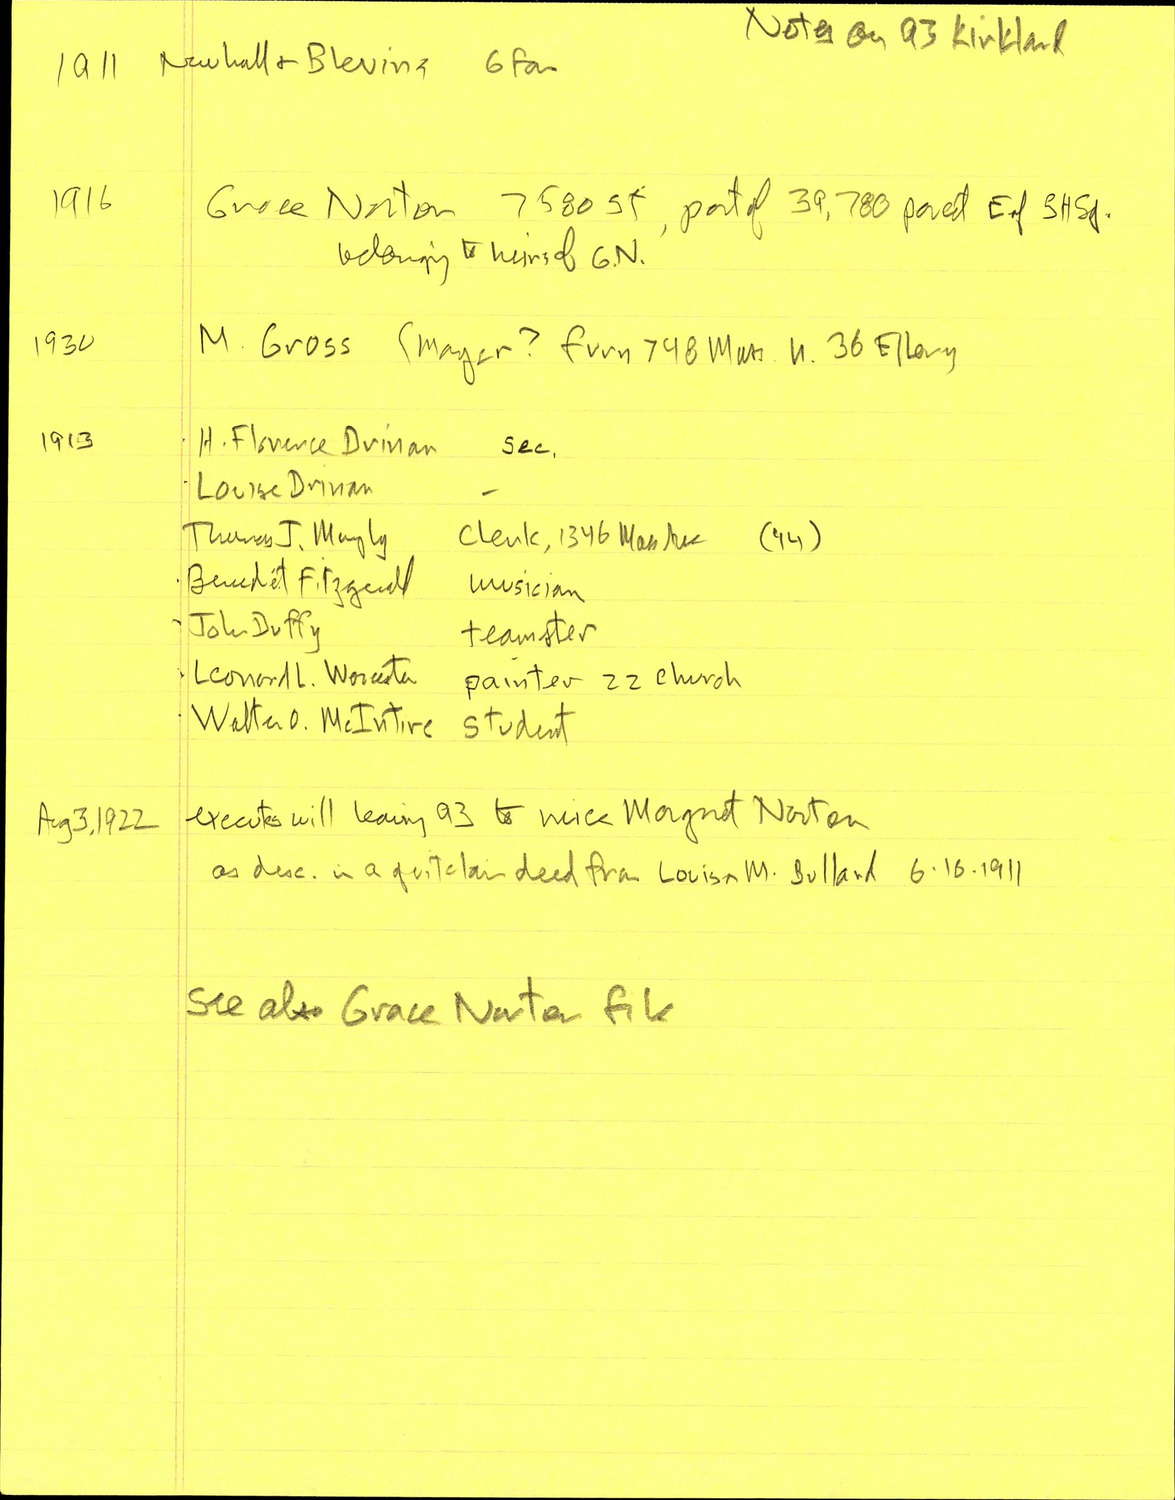 Notes on 93 Kirkland
1911 Newhall & Blevins 6 fam
1916 Grace Norton 7580 sf, part of 39,780 parcel E of SHSq.
belonging to heirs of G.N.
1930 M. Gross (Mayer? furn 748 Mass h. 36 Ellery
1913 H. Florence Drinan sec.
Louise Drinan -
Thomas J. Murphy Clerk, 1346 Mass Ave (44)
Benedict Fitzgerald musician
John Duffy teamster
Leonard L. Worcester painter 22 Church
Walter O. McIntire student
Aug 3, 1922 executes will leaving 93 to niece Margaret Norton
as desc. in a quitclaim deed from Louisa M. Bullard 6.16.1911
See also Grace Norton file